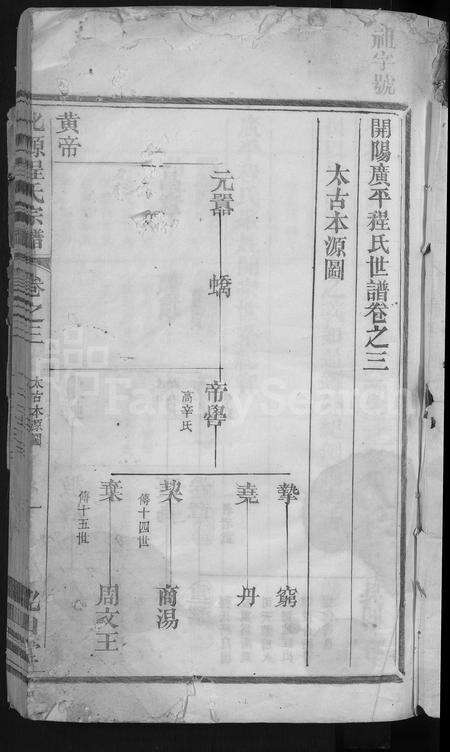 祖字號
開陽廣平程氏世譜卷之三
太古本源圖
黄帝
元囂
蟜
帝嚳
高辛氏
摯
窮
堯
丹
契
傳十四世
商湯
棄
傳十五世
周文王
北源程氏宗譜
卷之三
太古本源圖
一
FamilySearch